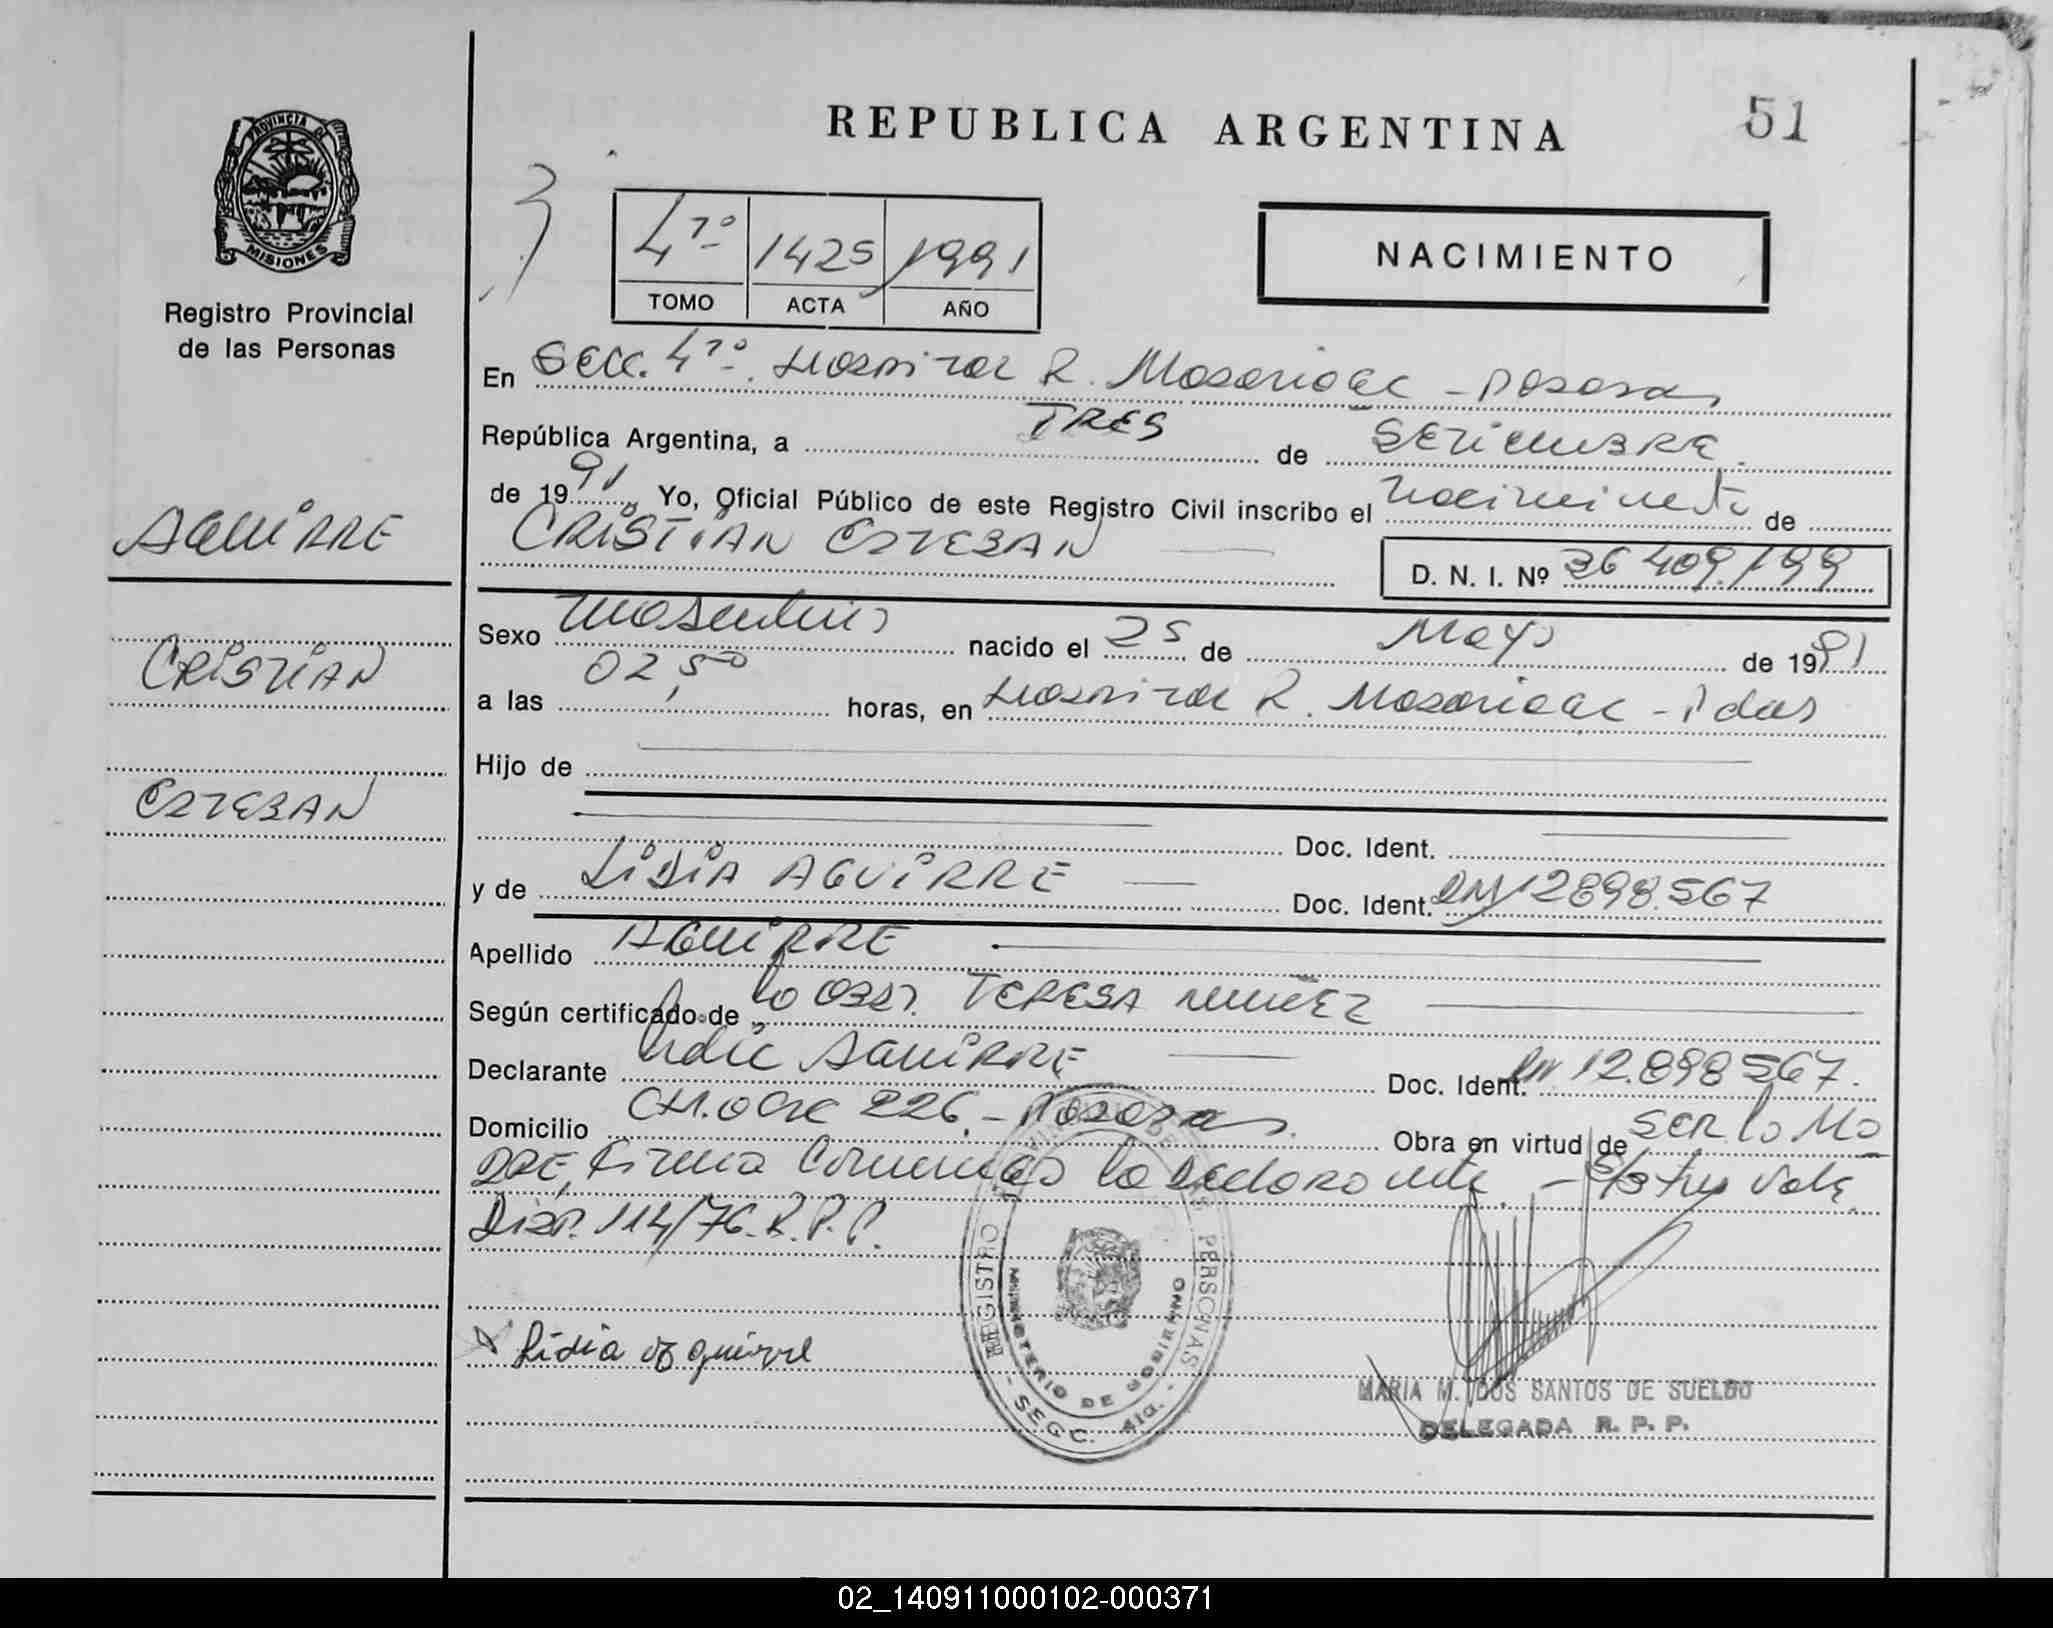 REPUBLICA ARGENTINA
51
PROVINCIA DE
MISIONES
Registro Provincial
de las Personas
4to 1425 1991
TOMO ACTA AÑO
NACIMIENTO
En Secc. 4to. Hospital R. Madariaga - Posadas
República Argentina, a TRES de SETIEMBRE.
de 1991, Yo, Oficial Público de este Registro Civil inscribo el nacimiento de
CRISTIAN ESTEBAN
D. N. I. Nº 36 409.199
AGUIRRE
CRISTIAN
ESTEBAN
Sexo masculino nacido el 25 de Mayo de 1991
a las 02,50 horas, en Hospital R. Madariaga - Pdas
Hijo de
Doc. Ident.
y de LIDIA AGUIRRE Doc. Ident. DNI 12898.567
Apellido AGUIRRE
Según certificado de la Obst. TERESA NUÑEZ
Declarante Lidia AGUIRRE Doc. Ident. DNI 12.898567.
Domicilio CH. 226.- Posadas. Obra en virtud de SER la MA
DRE, firma conmigo la declarante. - S/B Vale
Disp. 114/76. R.P.P.
Lidia Aguirre
REGISTRO PERSONAS
MINISTERIO DE GOBIERNO
- SECC. 4ta. -
MARIA M. DOS SANTOS DE SUELDO
DELEGADA R. P. P.
02_140911000102-000371